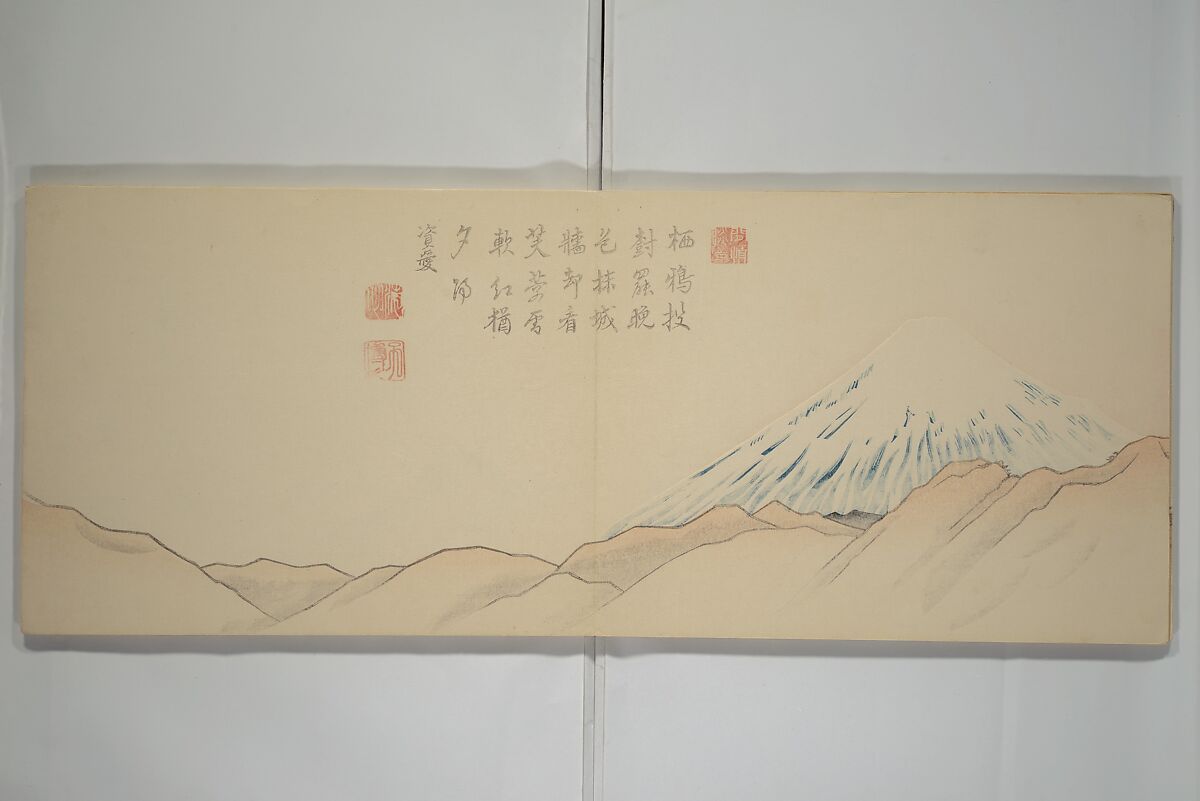 栖鴉投
罷晩
色抹城
牆却看
芙蓉雪
軟紅猶
夕陽
資愛